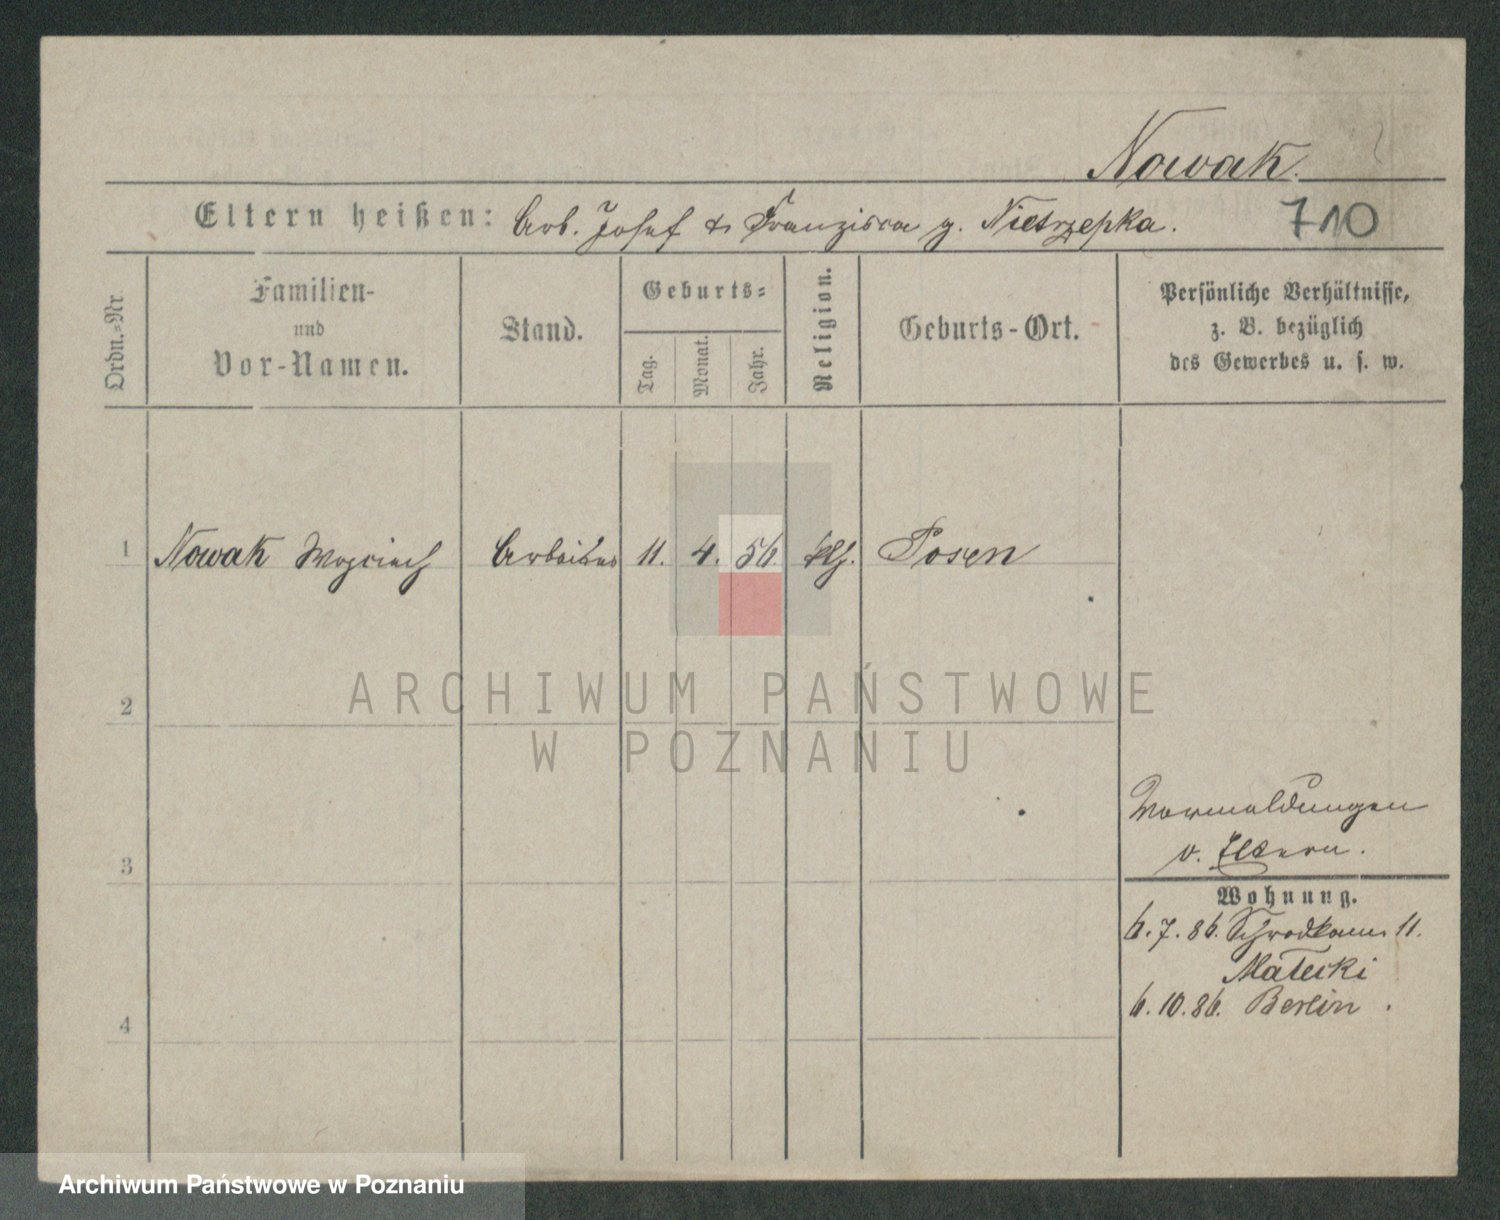 Nowak.
Eltern heißen: Arb. Josef & Franziska g. Nietrzepka.
710
Ordn.=Nr.
Familien-
und
Vor-Namen.
Stand.
Geburts=
Tag.
Monat.
Jahr.
Religion.
Geburts-Ort.
Persönliche Verhältnisse,
z. B. bezüglich
des Gewerbes u. s. w.
1 Nowak Wojciech Arbeiter 11. 4. 56. Posen
ARCHIWUM PAŃSTWOWE
W POZNANIU
2
Vormeldungen
3
v. Eltern.
Wohnung.
6.7.86. 11.
Matecki
6.10.86. Berlin.
4
Archiwum Państwowe w Poznaniu